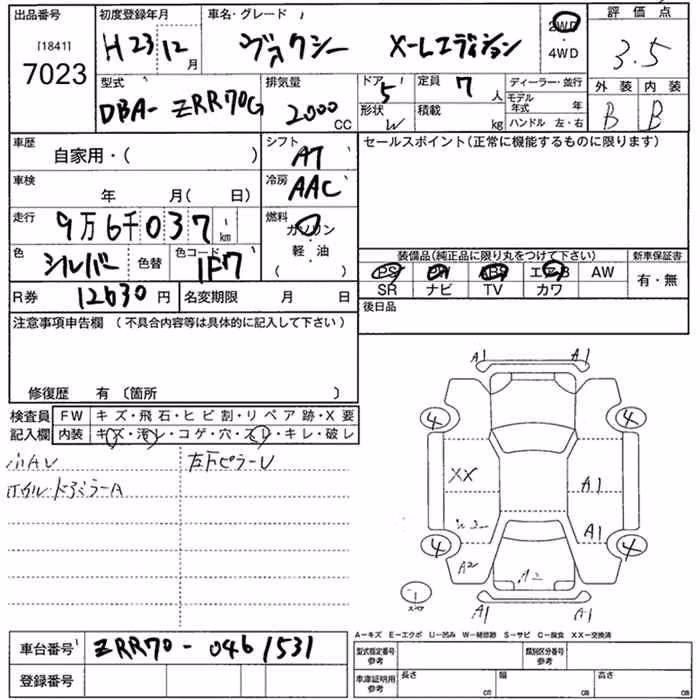 出品番号 初度登録年月 車名・グレード 2WD 評価点
[1841] H23 12月 ヴォクシー X-Lエディション 4WD 3.5
7023
型式 排気量 ドア 定員 ディーラー・並行 外装 内装
DBA-ZRR70G 2000CC 5 7人 モデル年式 年 B B
形状 W 積載 kg ハンドル 左・右
車歴 シフト セールスポイント(正常に機能するものに限ります)
自家用・( ) AT
車検 冷房
年 月( 日) AAC
走行 燃料
9万6千037km ガソリン
軽・油
( )
色 色替 色コード 装備品(純正品に限り丸をつけて下さい) 新車保証書
シルバー 1F7 PS PW ABS エアB AW 有・無
SR ナビ TV カワ
R券 12630円 名変期限 月 日 後日品
注意事項申告欄(不具合内容等は具体的に記入して下さい)
修復歴 有〔箇所 〕
検査員 FW キズ・飛石・ヒビ割・リペア跡・X要
記入欄 内装 キズ・汚レ・コゲ・穴・スレ・キレ・破レ
小AU 左下ピラーU
ドアミラーA
A1 A1
4 4
XX A1
A1
4 4
A2
A1 A1
A-キズ E-エクボ U-凹み W-補修跡 S-サビ C-腐食 XX-交換済
車台番号 ZRR70-0461531 型式指定番号 参考 類別区分番号 参考
登録番号 車庫証明用 参考 長さ cm 幅 cm 高さ cm